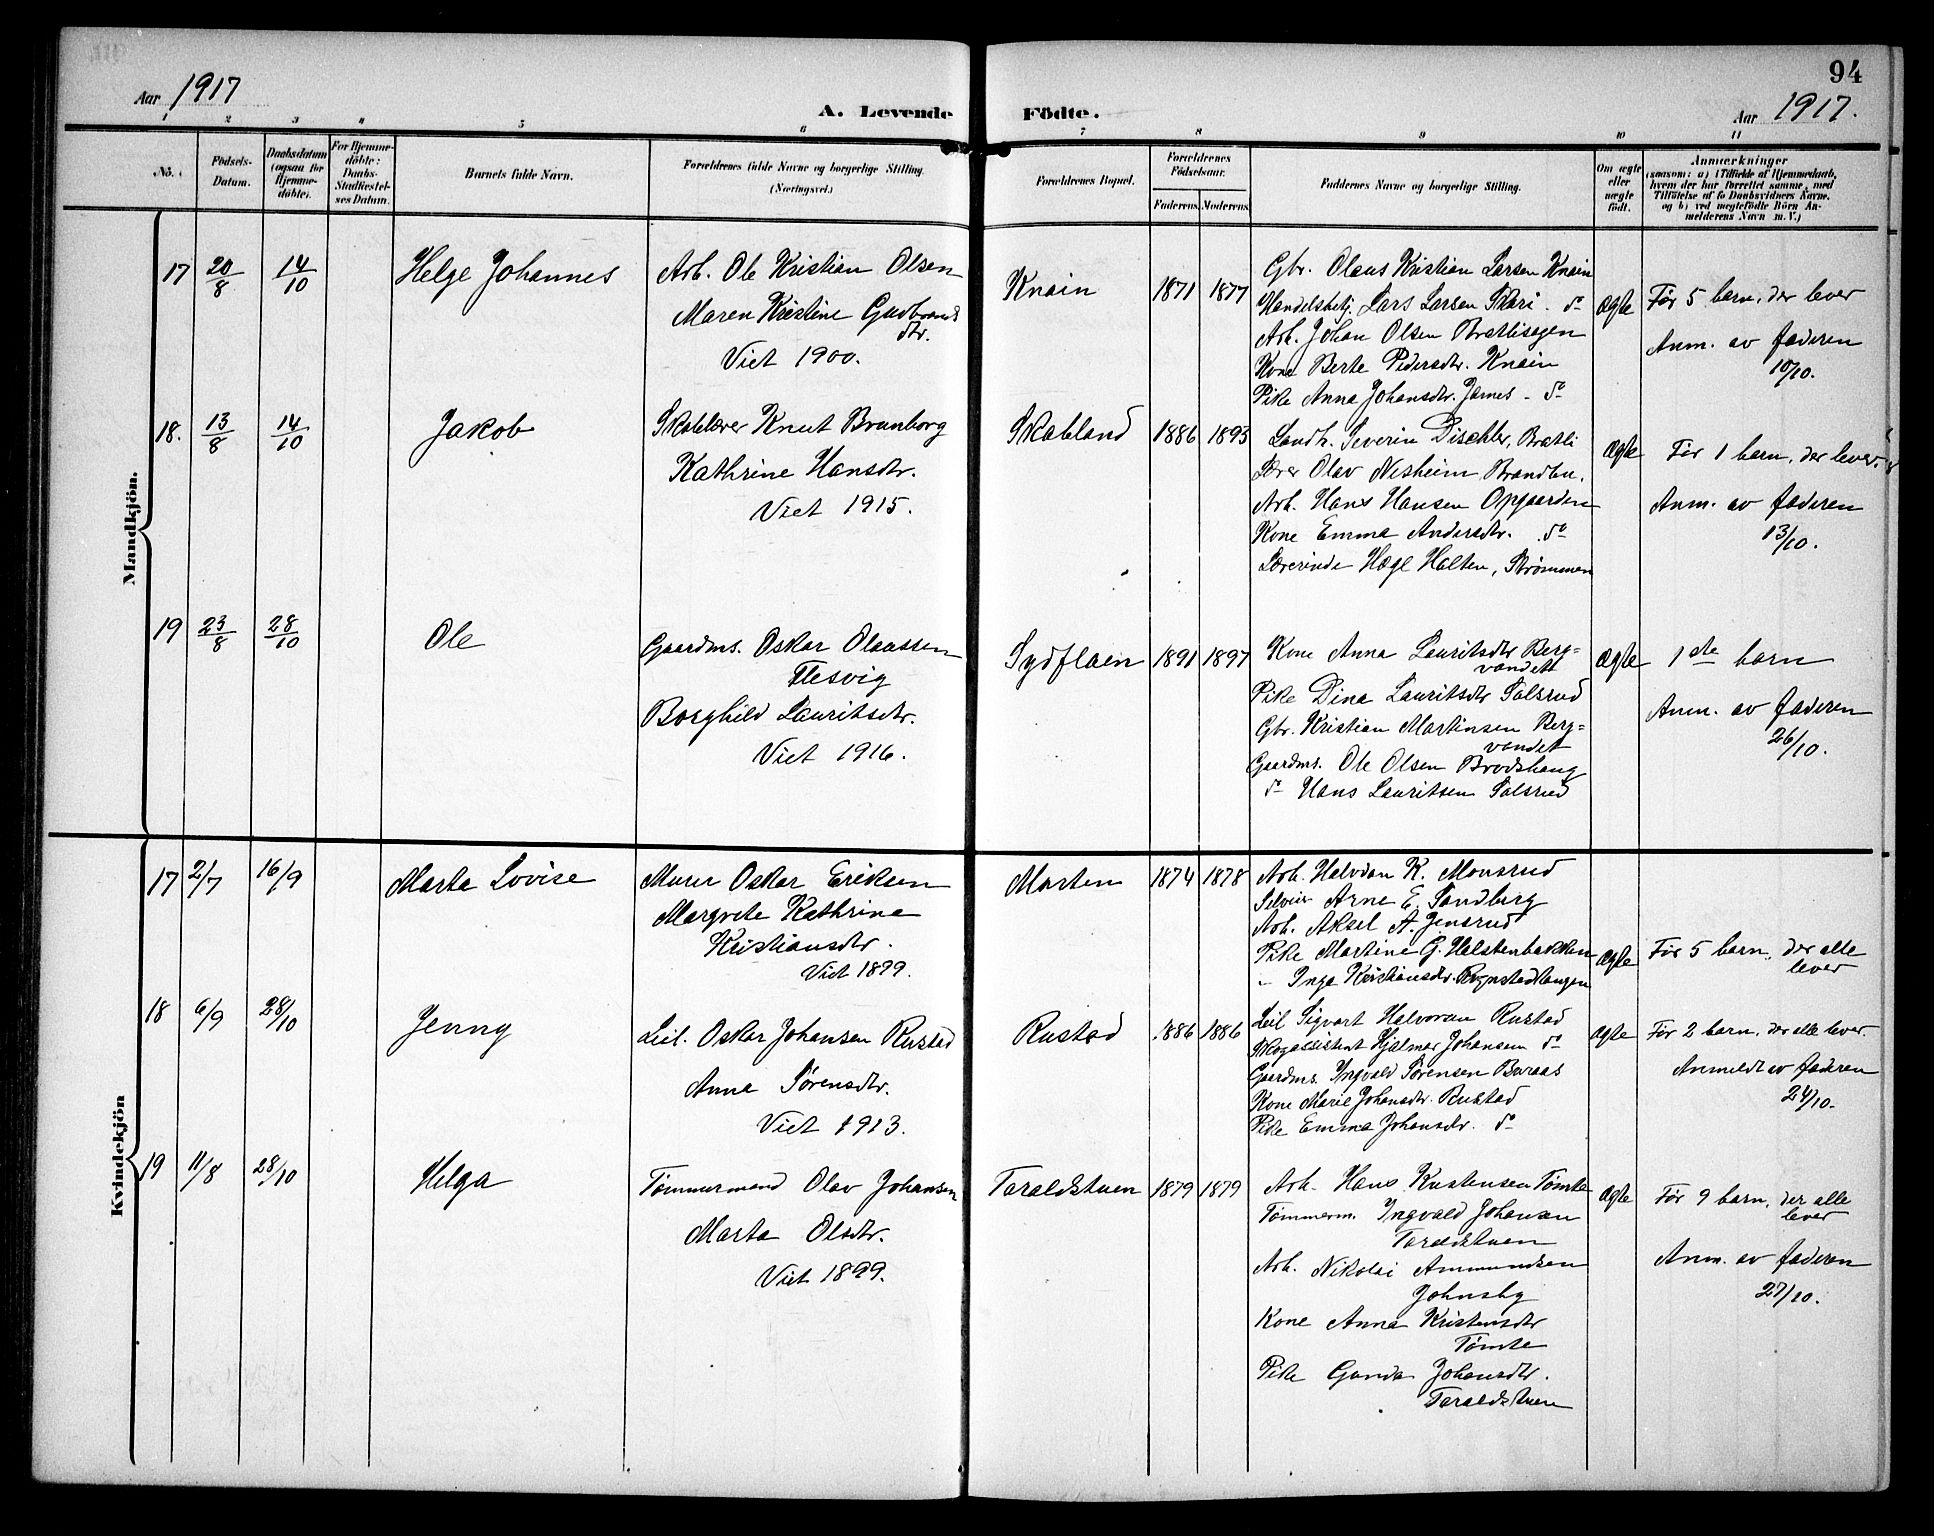 94
Aar 1917
A. Levende Födte.
Aar 1917.
1 2 3 4 5 6 7 8 9 10 11
No.
Födsels-Datum.
Daabsdatum (ogsaa for Hjemmedöbte).
For Hjemmedöbte: Daabs-Stadfæstelses Datum.
Barnets fulde Navn.
Forældrenes fulde Navne og borgerlige Stilling. (Næringsvei.)
Forældrenes Bopæl.
Forældrenes Födselsaar.
Faderens. Moderens.
Faddernes Navne og borgerlige Stilling.
Om ægte eller uægte födt.
Anmærkninger
(saasom: a) i Tilfælde af Hjemmedaab, hvem der har forrettet samme, med Tilföielse af to Daabsvidners Navne, og b) ved uægtefödte Börn Anmelderens Navn m. V.)
Mandkjön.
17 20/8 14/10 Helge Johannes
Arb. Ole Kristian Olsen
Maren Kristine Gudbrandsdtr.
Viet 1900.
Knain 1871 1877
Gbr. Olaus Kristian Larsen Knain
Handelsbetj. Lars Larsen Skari do
Arb. Johan Olsen Brætlisagen
Kone Berte Pedersdtr. Knain
Pike Anna Johansdtr. Jarnes - do
Ægte
Før 5 barn, der lever
Anm. av faderen
10/10.
18. 13/8 14/10 Jakob
Skolelærer Knut Brunborg
Kathrine Hansdtr.
Viet 1915.
Skobland 1886 1893
Landh. Severin Dischler, Brætli
Lærer Olav Nesheim Brandbu.
Arb. Hans Hansen Opgaarden
Kone Emma Andersdtr. do
Lærerinde Hægl Halten, Strømmen
Ægte
Før 1 barn, der lever.
Anm. av faderen
13/10.
19 23/8 28/10 Ole
Gaardms. Oskar Olaussen
Flesvig
Borghild Lauritsdtr.
Viet 1916.
Sydflaen 1891 1897
Kone Anna Lauritsdtr Berg=
vandett
Pike Dina Lauritsdtr Solsrud
Gbr. Kristian Martinsen Berg=
vandet
Gaardms. Ole Olsen Brodshaug
do Hans Lauritsen Solsrud
Ægte
1ste barn
Anm. av faderen
26/10.
Kvindekjön
17 2/7 16/9 Marta Lovise
Murer Oskar Eriksen
Margrete Kathrine
Kristiansdtr.
Viet 1899.
Morten 1874 1878
Arb. Halvdan K. Monsrud
Arne E. Sandberg
Arb. Aksel A. Jensrud
Pike Martine G. Holstenbakken
" Inga Kristiansdtr. Rognstadhaugen
Ægte
Før 5 barn, der alle
lever
18 6/9 28/10 Jenny
Leil. Oskar Johansen Rustad
Anna Sørensdtr.
Viet 1913.
Rustad 1886 1886
Leil Sigvart Halvorsen Rustad
Skogassistent Hjalmar Johansen do
Gaardms. Ingvald Sørensen Buraas
Kone Marie Johansdtr. Rustad
Pike Emma Johansdtr. do
Ægte
Før 2 barn, der alle lever
Anmeldt av faderen
24/10.
19 11/8 28/10 Helga
Tømmermand Olav Johansen
Marta Olsdtr.
Viet 1899.
Taraldstuen 1879 1879
Arb. Hans Kristensen Tømte
Tømmerm. Ingvald Johansen
Taraldstuen
Arb. Nikolai Ammundsen
Johnsby
Kone Anna Kristensdtr
Tømte
Pike Gunda Johansdtr.
Taraldstuen
Ægte
Før 9 barn, der alle
lever
Anm. av faderen
27/10.